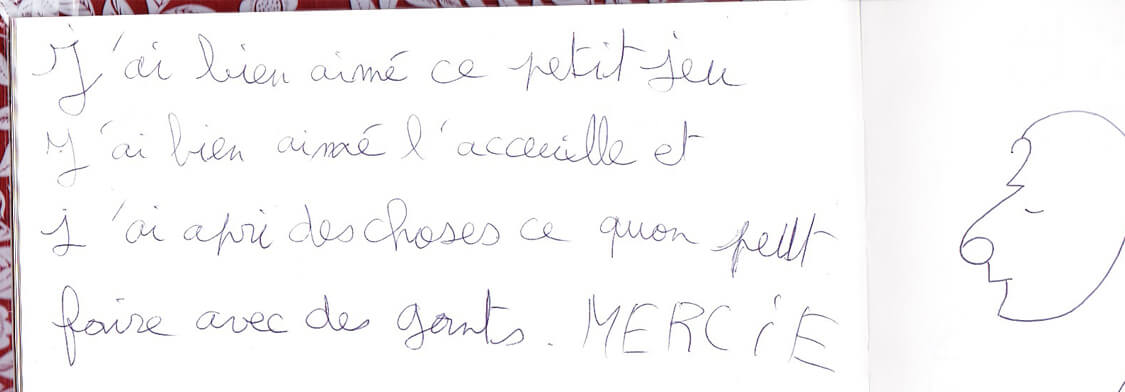 J'ai bien aimé ce petit jeu
J'ai bien aimé l'acceuille et
j'ai apri des choses ce quon peut
faire avec des gants. MERCiE